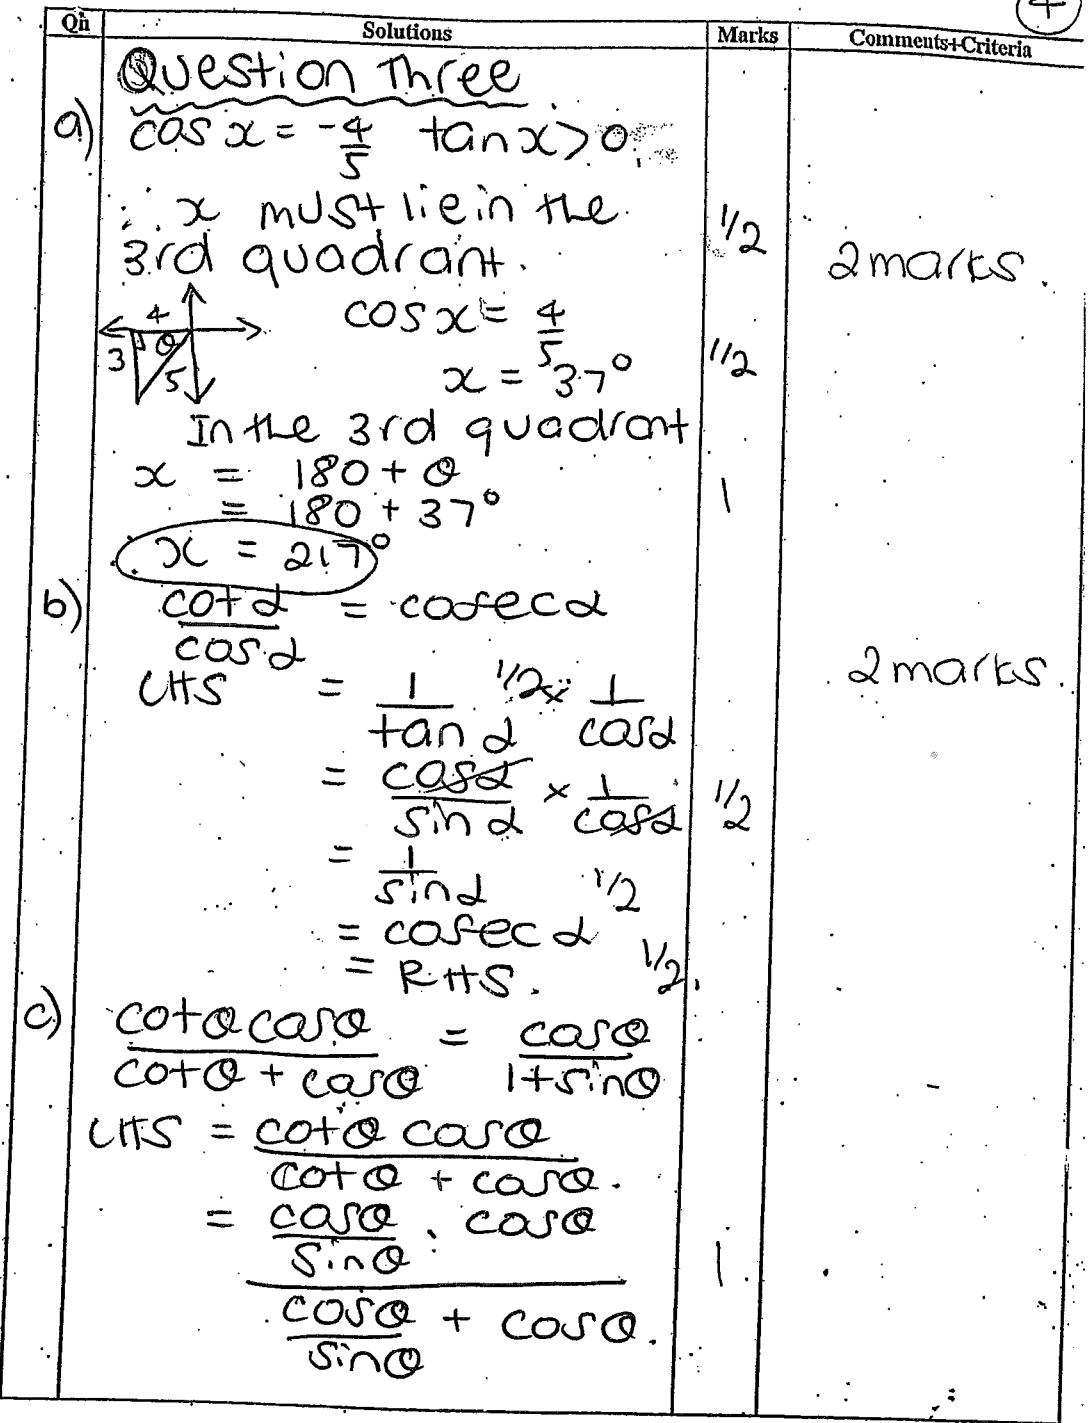 4
Qn Solutions Marks Comments+Criteria
Question Three
a) cos x = -4/5 tan x > 0.
∴ x must lie in the
3rd quadrant. 1/2 2 marks.
cos x = 4/5
4 θ 3 5
x = 37° 1/2
In the 3rd quadrant
x = 180 + θ
= 180 + 37° 1
x = 217°
b) cot α / cos α = cosec α
2 marks.
LHS = 1/tan α 1/2 × 1/cos α
= cos α / sin α × 1/cos α 1/2
= 1/sin α 1/2
= cosec α
= RHS. 1/2
c) cot θ cos θ / cot θ + cos θ = cos θ / 1 + sin θ
LHS = cot θ cos θ / cot θ + cos θ.
= cos θ / sin θ . cos θ
1
cos θ / sin θ + cos θ.